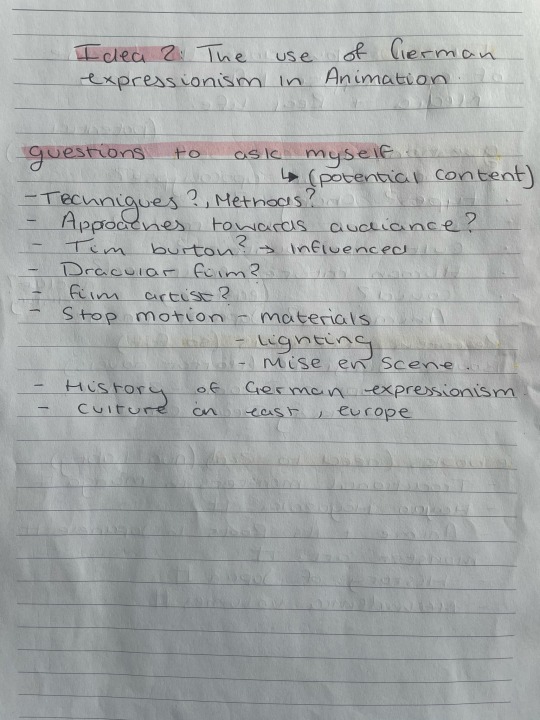 Idea 2: The use of German
expressionism in Animation.
questions to ask myself.
↳ (potential content)
- Techniques?, Methods?
- Approaches towards audiance?
- Tim burton? → Influenced
- Dracular film?
- film artist?
- Stop motion - materials
- Lighting
- Mise en scene.
- History of German expressionism
- culture in east, europe